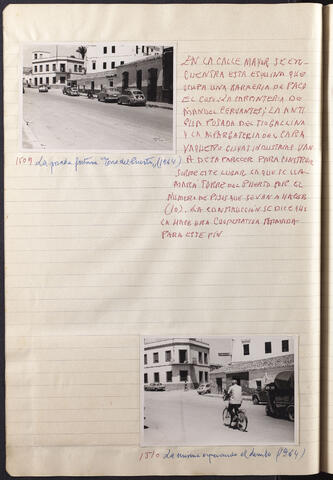 EN LA CALLE MAYOR SE EN-
CUENTRA ESTA ESQUINA QUE
OCUPA UNA BARBERIA DE PACO
EL CARPINTERIA DE
MANUEL CERVANTES LA ANTI
GUA POSADA DEL TIO GALLINA
Y LA ALPARGATERIA DEL CABRA
VAN
A DESAPARECER PARA CONSTRUIR
SOBRE ESTE LUGAR LA QUE SE LLA-
MARA TORRE DEL PUERTO POR EL
NUMERO DE PISOS QUE SE VAN A HACER
(10). LA CONSTRUCCION SE DICE QUE
LA HACE UNA COOPERATIVA FORMADA
PARA ESTE FIN
1509 La futura Torre del Puerto, (1964)
1510 La misma esperando el derribo (1964)